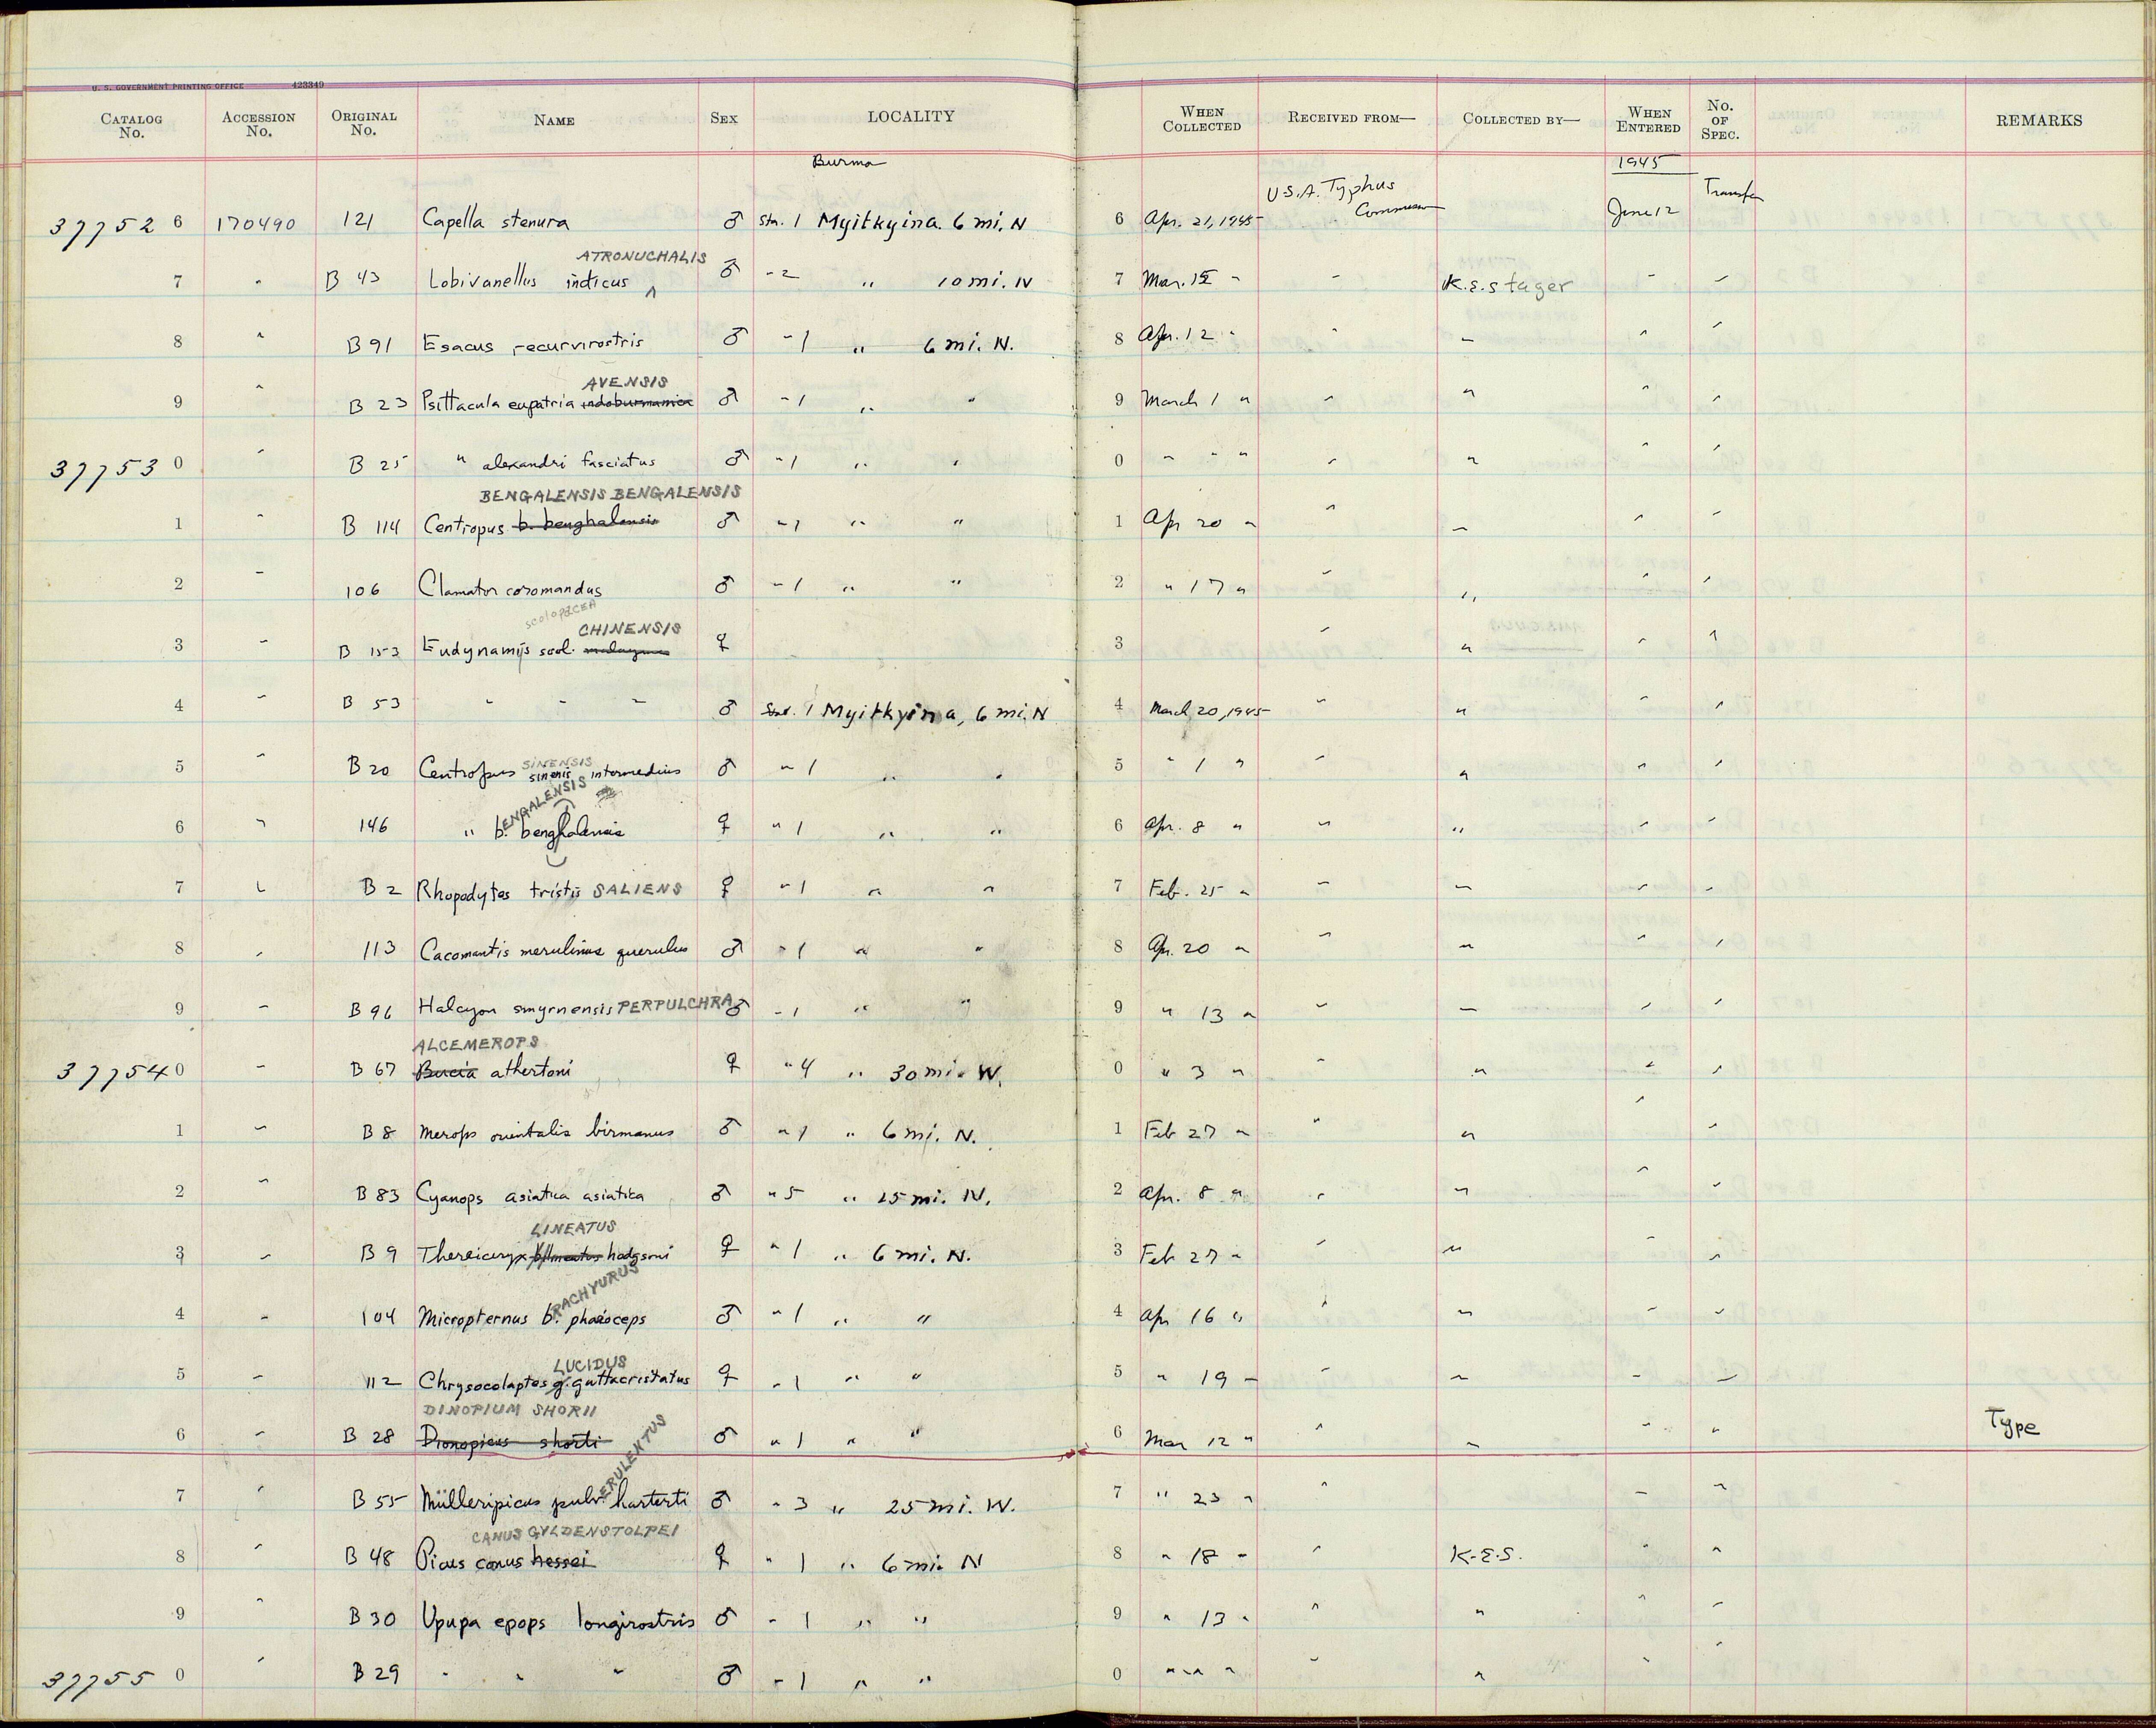 U. S. GOVERNMENT PRINTING OFFICE 423349
CATALOG No. ACCESSION No. ORIGINAL No. NAME SEX LOCALITY WHEN COLLECTED RECEIVED FROM— COLLECTED BY— WHEN ENTERED No. OF SPEC. REMARKS
Burma 1945
37752 6 170490 121 Capella stenura ♂ Sta. 1 Myitkyina. 6 mi. N 6 Apr. 21, 1945 U.S.A. Typhus Commission June 12 Transfer
ATRONUCHALIS
7 " B 43 Lobivanellus indicus ^ ♂ " 2 " 10 mi. N 7 Mar. 15 " " K.E. Stager " "
8 " B 91 Esacus recurvirostris ♂ " 1 " 6 mi. N. 8 Apr. 12 " " " " "
AVENSIS
9 " B 23 Psittacula eupatria indoburmanica ♂ " 1 " " 9 March 1 " " " " "
37753 0 " B 25 " alexandri fasciatus ♂ " 1 " " 0 " " " " " " "
BENGALENSIS BENGALENSIS
1 " B 114 Centropus b. benghalensis ♂ " 1 " " 1 Apr 20 " " " " "
2 " 106 Clamator coromandus ♂ " 1 " " 2 " 17 " " " " "
scolopacea CHINENSIS
3 " B 153 Eudynamis scol. malayana ♀ 3 " " " "
4 " B 53 " " " ♂ Sta. 1 Myitkyina, 6 mi. N 4 March 20, 1945 " " " "
SINENSIS
5 " B 20 Centropus sinenis intermedius ♂ " 1 " " 5 " 1 " " " " "
ENGALENSIS
6 " 146 " b. benghalensis ♀ " 1 " " 6 Apr. 8 " " " " "
7 " B 2 Rhopodytes tristis SALIENS ♀ " 1 " " 7 Feb. 25 " " " " "
8 " 113 Cacomantis merulinus querulus ♂ " 1 " " 8 Apr. 20 " " " " "
9 " B 96 Halcyon smyrnensis PERPULCHRA ♂ " 1 " " 9 " 13 " " " " "
ALCEMEROPS
37754 0 " B 67 Bucia athertoni ♀ " 4 " 30 mi. W. 0 " 3 " " " " "
1 " B 8 Merops orientalis birmanus ♂ " 1 " 6 mi. N. 1 Feb 27 " " " " "
2 " B 83 Cyanops asiatica asiatica ♂ " 5 " 25 mi. N. 2 Apr. 8 " " " " "
LINEATUS
3 " B 9 Thereiceryx lineatus hodgsoni ♀ " 1 " 6 mi. N. 3 Feb 27 " " " " "
RACHYURUS
4 " 104 Micropternus b. phaioceps ♂ " 1 " " 4 Apr 16 " " " " "
LUCIDUS
5 " 112 Chrysocolaptes g. guttacristatus ♀ " 1 " " 5 " 19 " " " " "
DINOPIUM SHORII
6 " B 28 Dionopicus shorti ♂ " 1 " " 6 Mar 12 " " " " " Type
ERULENTUS
7 " B 55 Mülleripicus pulv. harterti ♂ " 3 " 25 mi. W. 7 " 23 " " " "
CANUS GYLDENSTOLPEI
8 " B 48 Picus canus hessei ♀ " 1 " 6 mi. N 8 " 18 " " K.E.S. " "
9 " B 30 Upupa epops longirostris ♂ " 1 " " 9 " 13 " " " " "
37755 0 " B 29 " " " ♂ " 1 " " 0 " " " " " " "